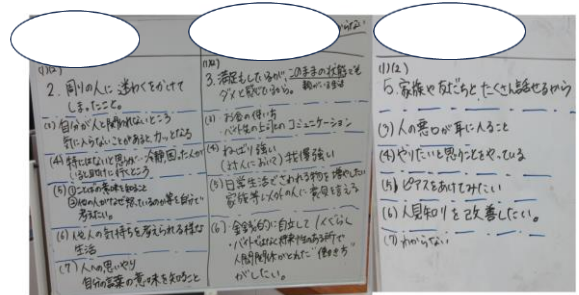 (1)(2)
2. 周りの人に迷わくをかけて
しまったこと。
(3) 自分が人と関われないところ
気に入らないことがあると、カッとなる
(4) 特にはないと思うが
いると助けに行くところ
(5) ①ことばの意味を知ること
②他の人がなぜ怒っているのか等を自分で
考えたい。
(6) 他人の気持ちを考えられる様な
生活
(7) 人への思いやり
自分の言葉の意味を知ること
らない
(1)(2)
3. 満足もしているが、このままの状態でも
ダメと感じているから。
(3) お金の使い方
バイト先の上司とのコミュニケーション
(4) ねばり強い
(対人において)我慢強い
(5) 日常生活で
家族等以外の人に意見を言える
(6) 金銭的に自立して1人ぐらし
・バイトではなく将来性のある所で
人間関係がとれた"働き方"
がしたい。
(1)(2)
5. 家族や友だちとたくさん話せるから
(3) 人の悪口が耳に入ること
(4) やりたいと思うことをやっている
(5) ピアスをあけてみたい
(6) 人見知りを改善したい。
(7) わからない